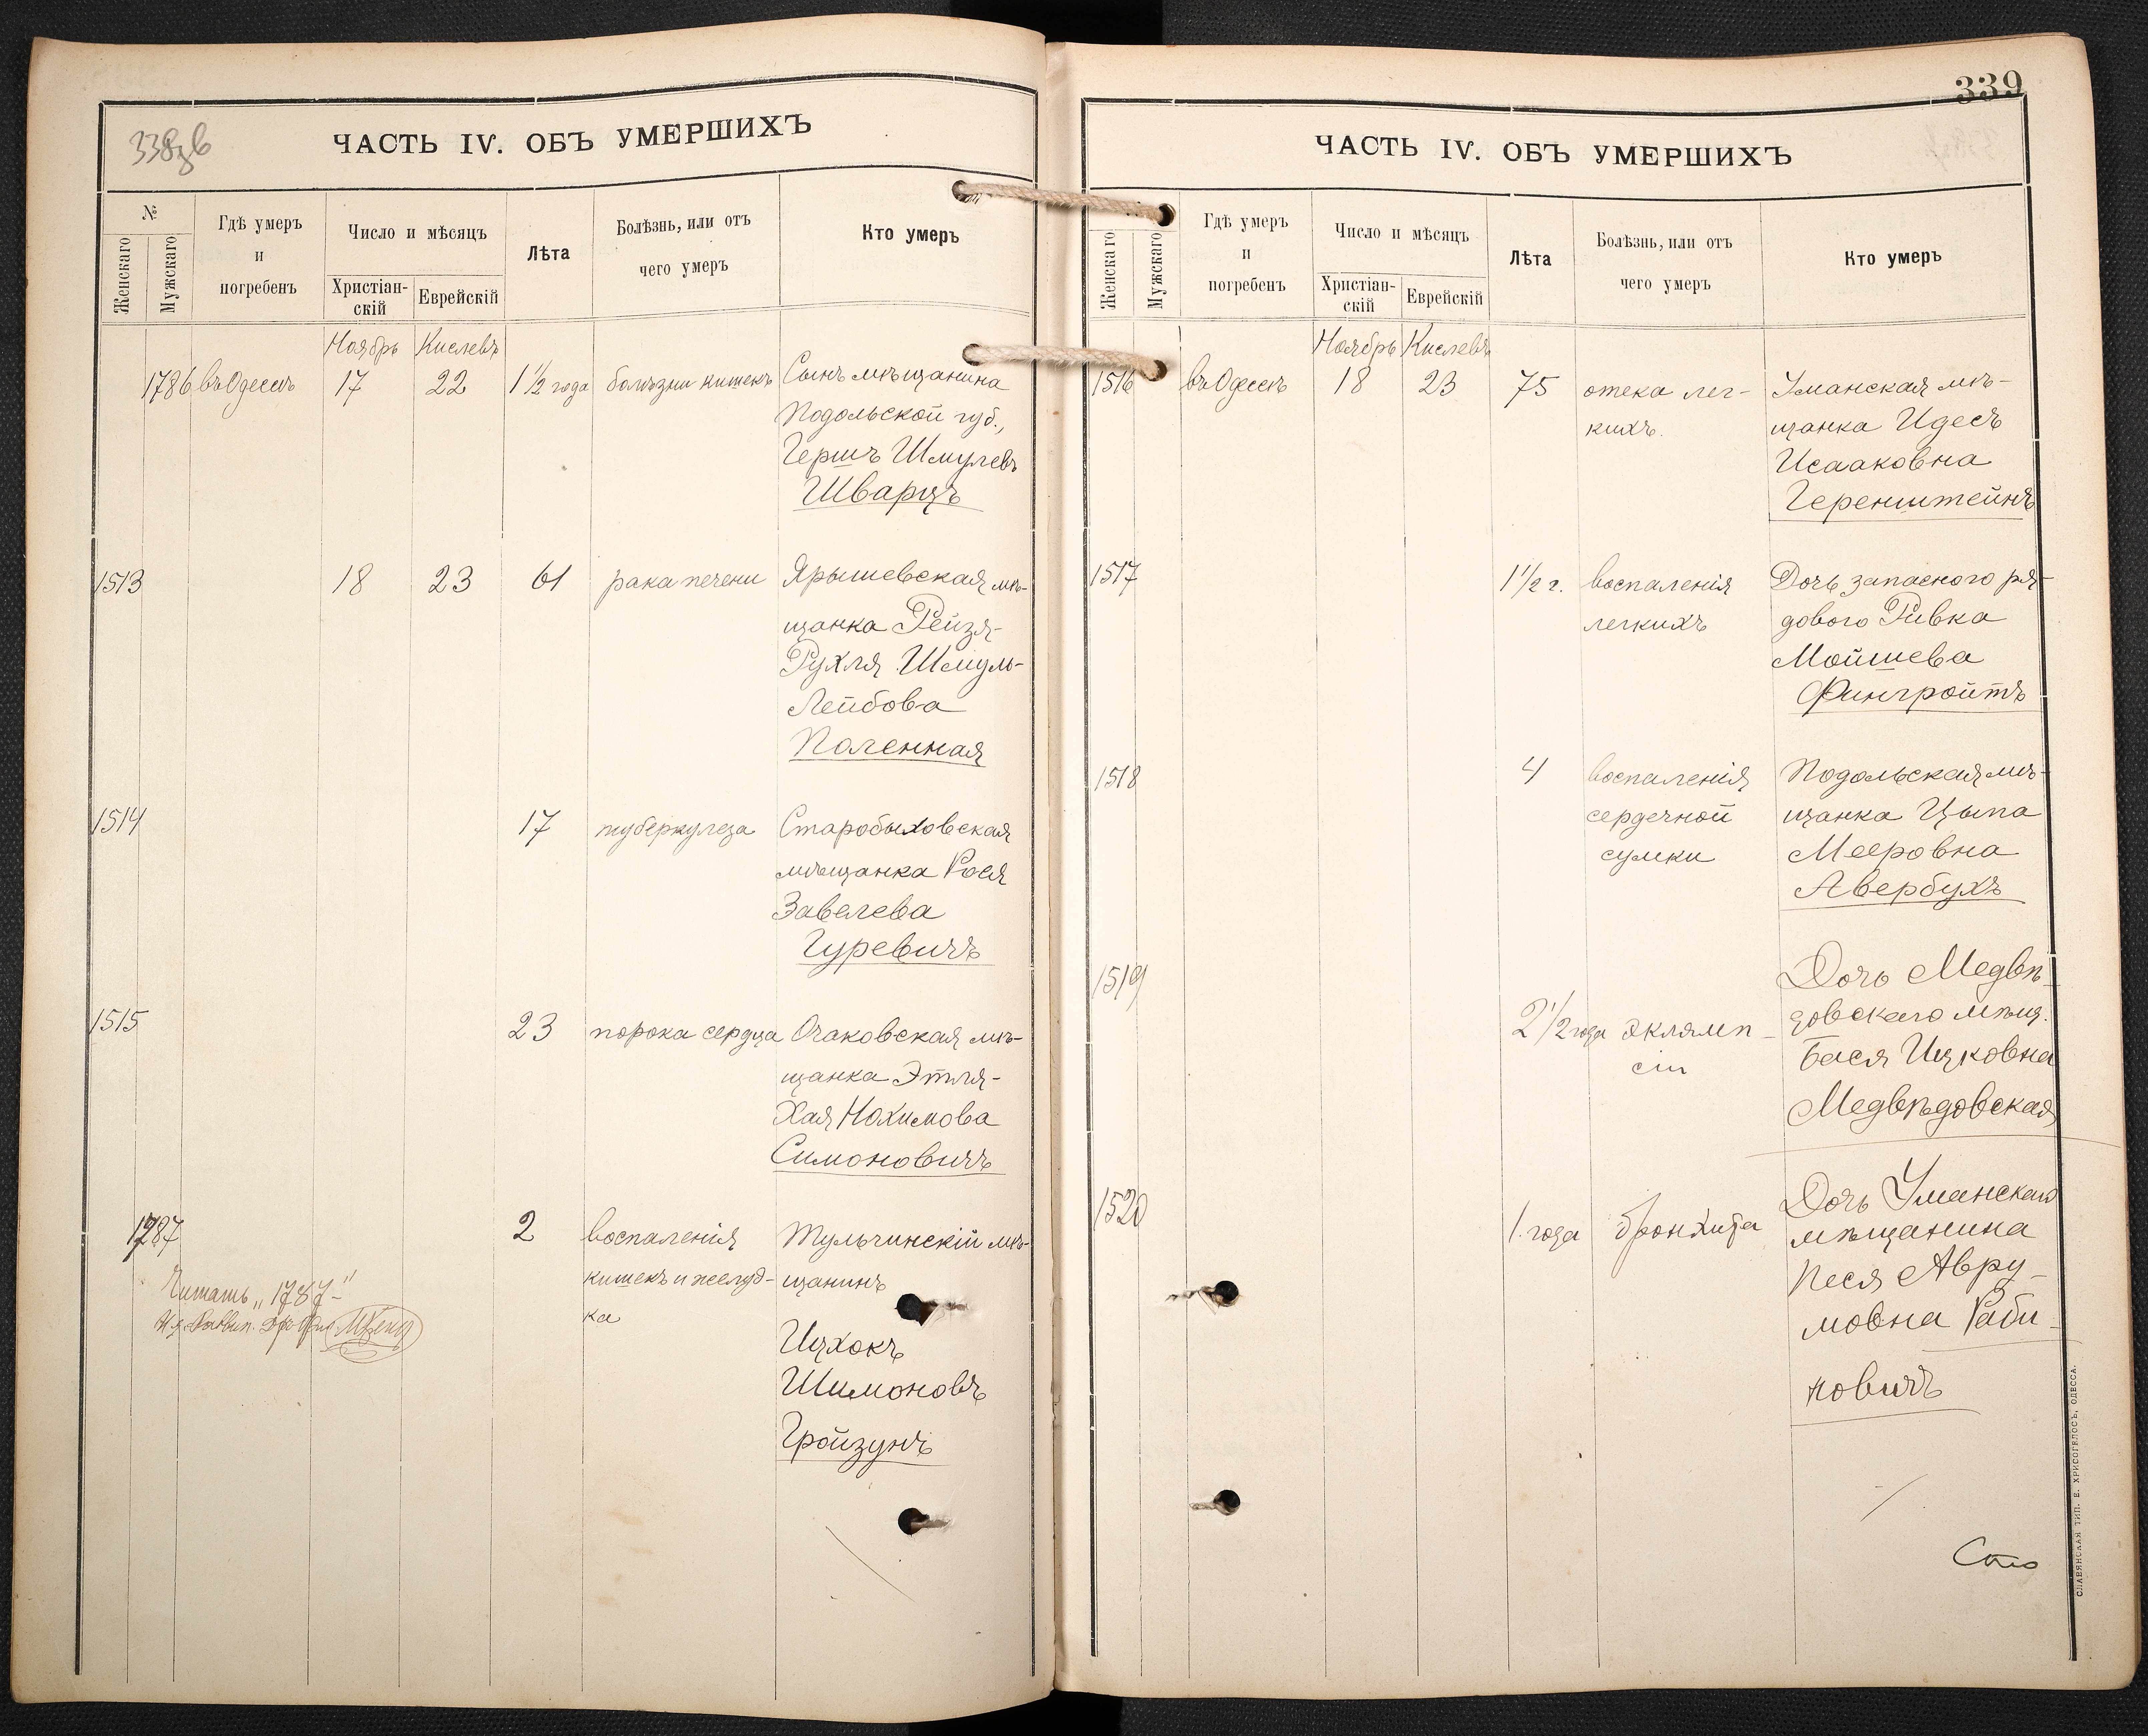 338об
ЧАСТЬ IV. ОБЪ УМЕРШИХЪ
№
Женскаго
Мужскаго
Гдѣ умеръ
и
погребенъ
Число и мѣсяцъ
Христіан-
скій
Еврейскій
Лѣта
Болѣзнь, или отъ
чего умеръ
Кто умеръ
Ноябрь Кислевъ
1786 въ Одессѣ 17 22 1 1/2 года болѣзни кишекъ Сынъ мѣщанина
Подольской губ.,
Гершъ Шмулевъ
Шварцъ
1513 18 23 61 рака печени Ярышевская мѣ-
щанка Рейзя-
Рухля Шмуль-
Лейбова
Поленная
1514 17 туберкулеза Старобыховская
мѣщанка Рося
Завелева
Гуревичъ
1515 23 порока сердца Очаковская мѣ-
щанка Этля-
Хая Нохимова
Симоновичъ
1787 2 воспаленія Тульчинскій мѣ-
кишекъ и желуд- щанинъ
ка
Ицхокъ
Шимоновъ
Гройзунъ
Читать „1787“
339
ЧАСТЬ IV. ОБЪ УМЕРШИХЪ
Женскаго
Мужскаго
Гдѣ умеръ
и
погребенъ
Число и мѣсяцъ
Христіан-
скій
Еврейскій
Лѣта
Болѣзнь, или отъ
чего умеръ
Кто умеръ
Ноябрь Кислевъ
1516 въ Одессѣ 18 23 75 отека лег- Уманская мѣ-
кихъ. щанка Идесъ
Исааковна
Геренштейнъ
1517 1 1/2 г. воспаленія Дочь запасного ря-
легкихъ дового Ривка
Мойшева
Фингройтъ
1518 4 воспаленія Подольская мѣ-
сердечной щанка Цыпа
сумки Мееровна
Авербухъ
1519 Дочь Медвѣ-
2 1/2 года эклямп- довскаго мѣщ.
сіи Бася Ицковна
Медвѣдовская
1520 Дочь Уманскаго
1 года бронхита мѣщанина
Песя Авру-
мовна Раби-
новичъ
Сто
СЛАВЯНСКАЯ ТИП. Е. ХРИСОГЕЛОСЪ, ОДЕССА.